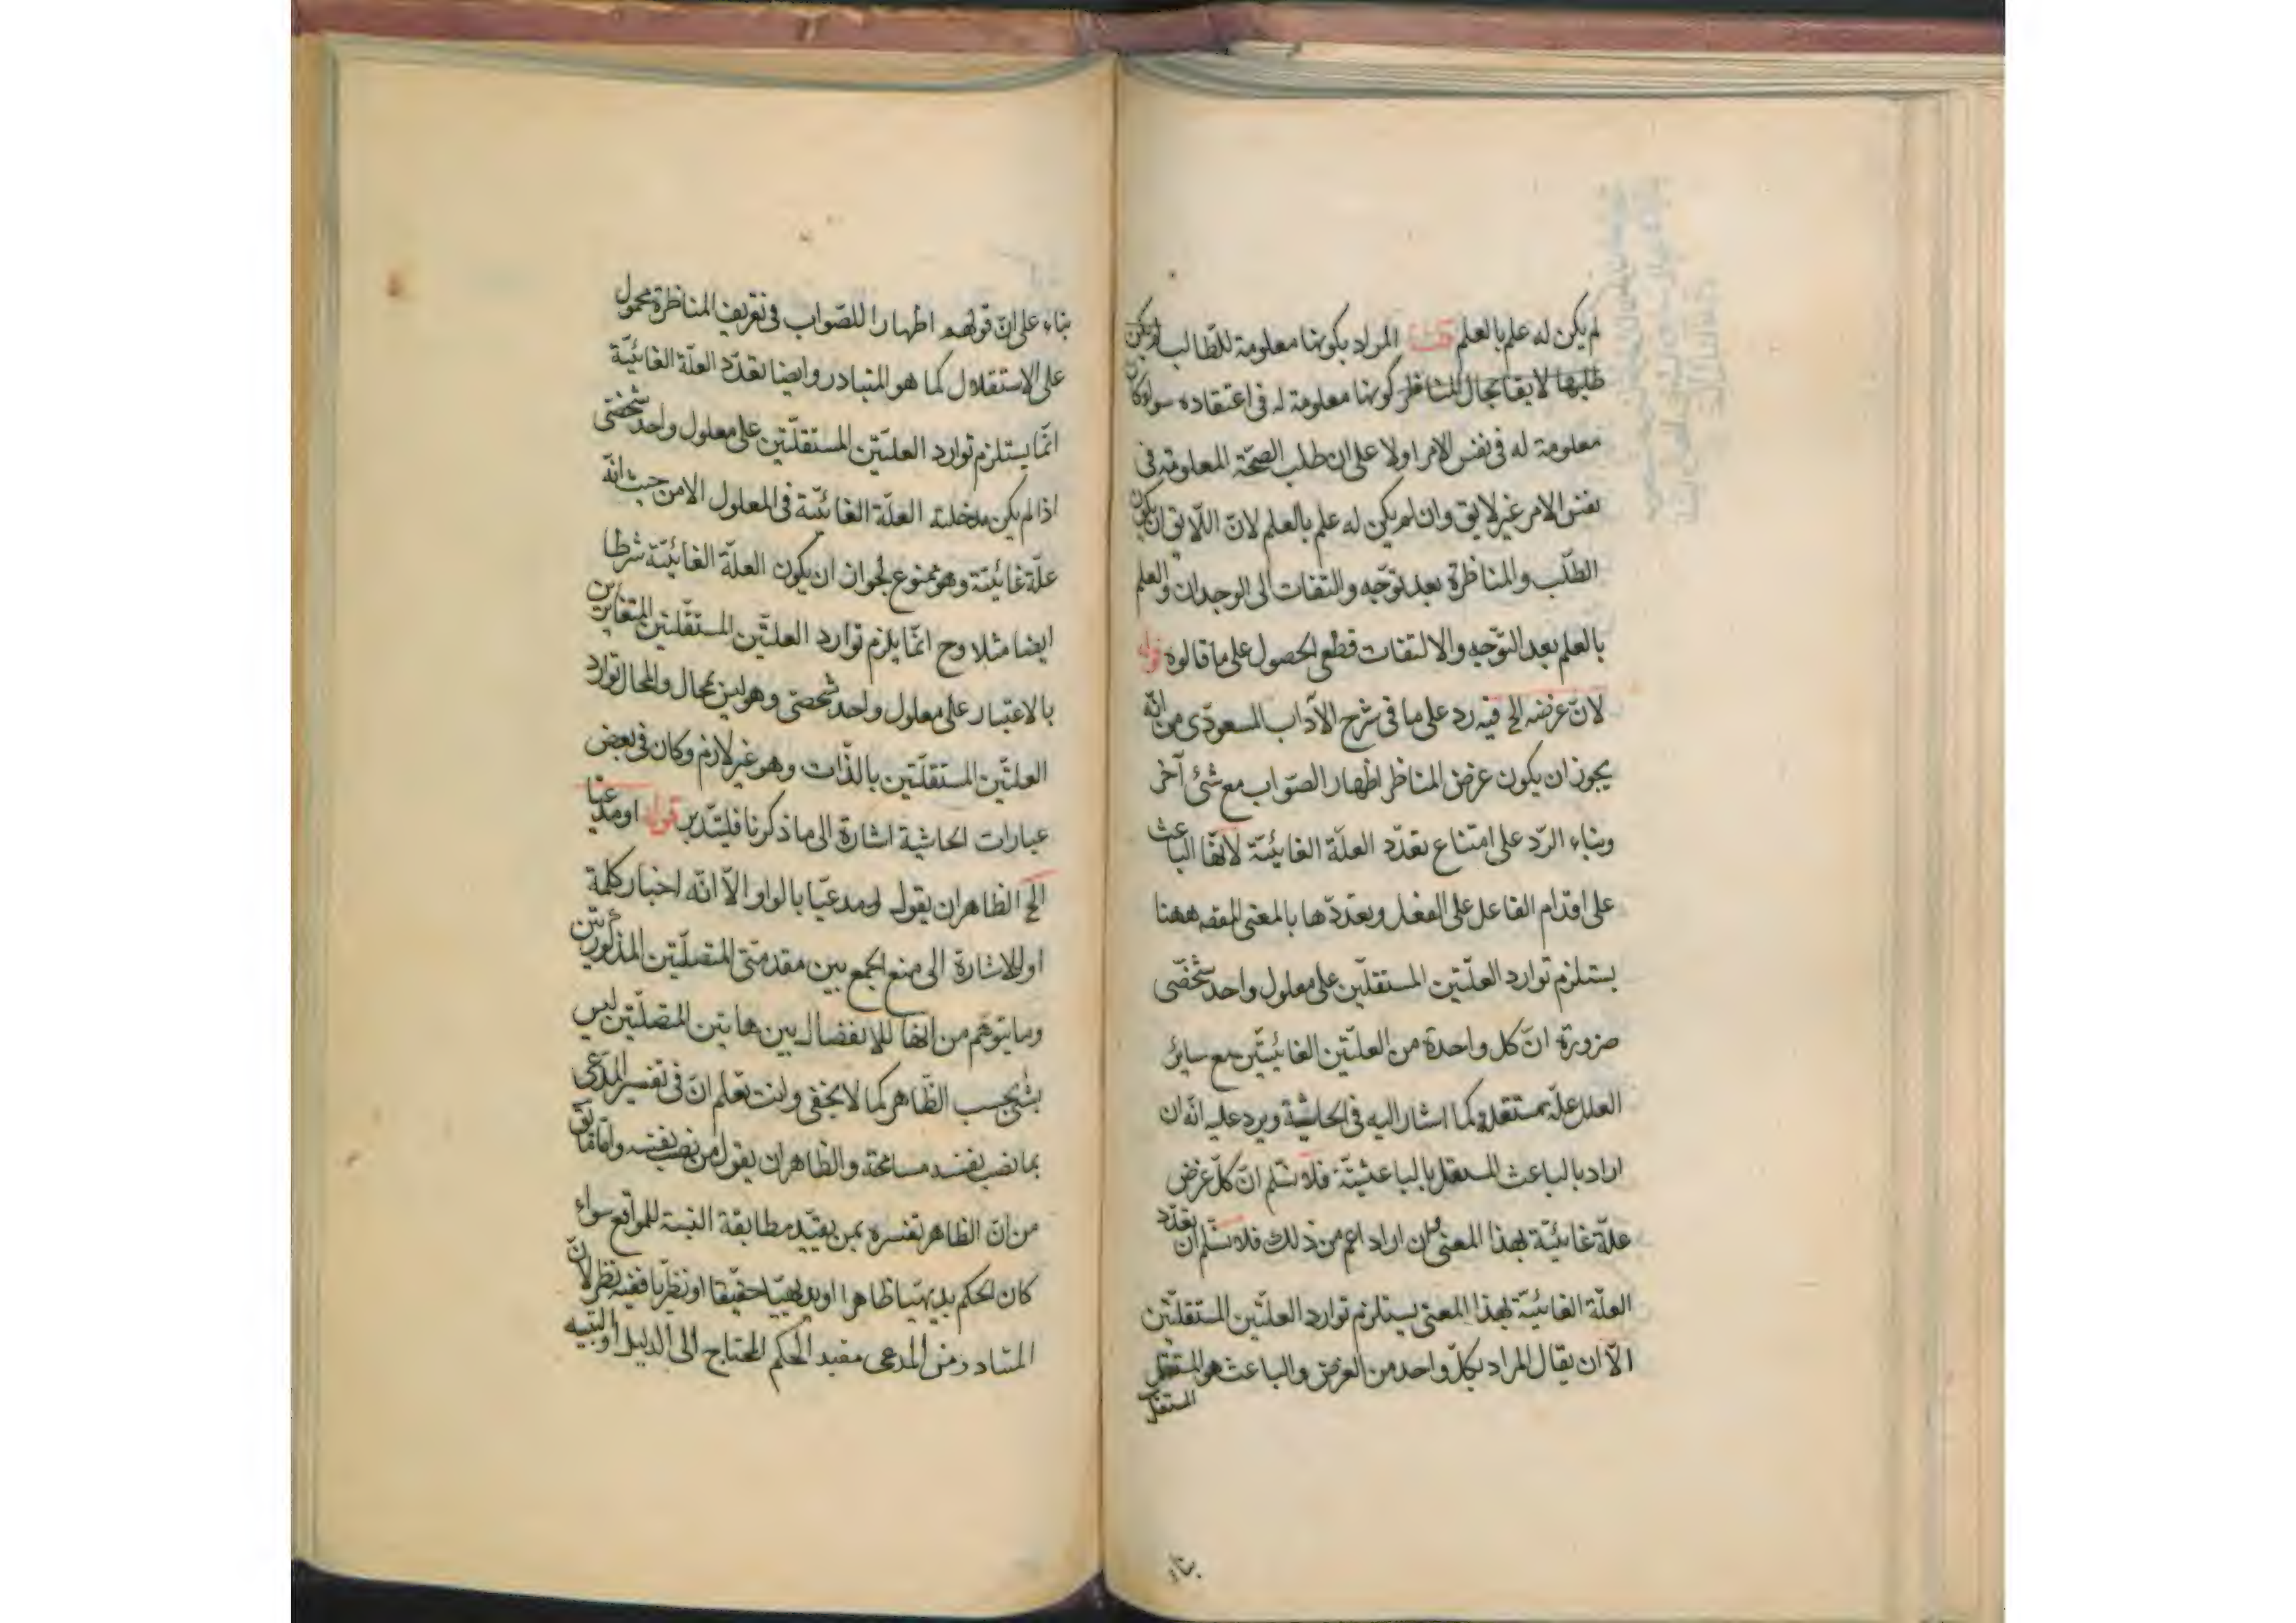 لم يكن له علم بالعلم قلت المراد بكونها معلومة للطالب او يكن
طلبها لا يقا بحال المناظر كونها معلومة له في اعتقاده سواء كان
معلومة له في نفس الامر اولا على ان طلب الصحّة المعلومة في
نفس الامر غير لايق وان لم يكن له علم بالعلم لانّ اللّايق ان يكون
الطّلب والمناظرة بعد توجّه والتفات الى الوجدان والعلم
بالعلم بعد التّوجه والالتفات قطعي الحصول على ما قالوه قوله
لانّ غرضه الخ فيه رد على ما في شرح الآداب المسعودي من انّه
يجوز ان يكون غرض المناظر اظهار الصّواب مع شئ آخر
وبناء الرّد على امتناع تعدّد العلّة الغائيّة لانّها الباعث
على اقدام الفاعل على الفعل وتعدّدها بالمعنى ههنا
يستلزم توارد العلّتين المستقلّين على معلول واحد شخصّى
ضرورة انّ كل واحدة من العلّتين الغائيّتين مع ساير
العلل علّة مستقلة كما اشار اليه في الحاشية ويرد عليه انّه ان
اراد بالباعث المستقل بالباعثيّة فلا نسّلم انّ كلّ غرض
علّة غائيّة بهذا المعنى وان اراد اعم من ذلك فلا نسّلم ان تعدّد
العلّة الغائيّة بهذا المعنى يستلزم توارد العلّتين المستقلّتين
الّا ان يقال المراد بكلّ واحد من الغرض والباعث هو المستقل
المستقل
بناء
بناء على انّ قولهم اظهارا للصّواب في تعريف المناظرة محمول
على الاستقلال كما هو المتبادر وايضا تعدّد العلّة الغائيّة
انّما يستلزم توارد العلّتين المستقلّتين على معلول واحد شخصّى
اذا لم يكن مدخلية العلّة الغائيّة في المعلول الا من حيث انّه
علّة غائيّة وهو ممنوع لجواز ان يكون العلّة الغائيّة شرطا
ايضا مثلا وح انّما يلزم توارد العلّتين المستقلّتين المتغايرتين
بالاعتبار على معلول واحد شخصّى وهو ليس بمحال والمحال توارد
العلّتين المستقلّتين بالذّات وهو غير لازم وكان في بعض
عبارات الحاشية اشارة الى ما ذكرنا فليتّدبر قوله او مدعيا
الخ الظاهر ان يقول ومدعيّا بالواو الّا انّه اختار كلمة
او للاشارة الى منع الجمع بين مقدمتي المتصلّتين المذكورتين
وما يتوهّم من انها للانفصال بين هاتين المتصلّتين ليس
بشئ بحسب الظّاهر كما لا يخفى وانت تعلم انّ في تفسير المدّعى
بما نصب نفسه مسامحة والظاهر ان يقول من نصب نفسه وامّا ما يق
من انّ الظاهر تفسره بمن يفيد مطابقة النسبة للواقع سواء
كان الحكم بديهيّا ظاهرا او بديهيّا حفيّقا او نظريّا ففيه نظر لانّ
المتبادر من المدعى مفيد الحكم المحتاج الى الدليل او التنبيه